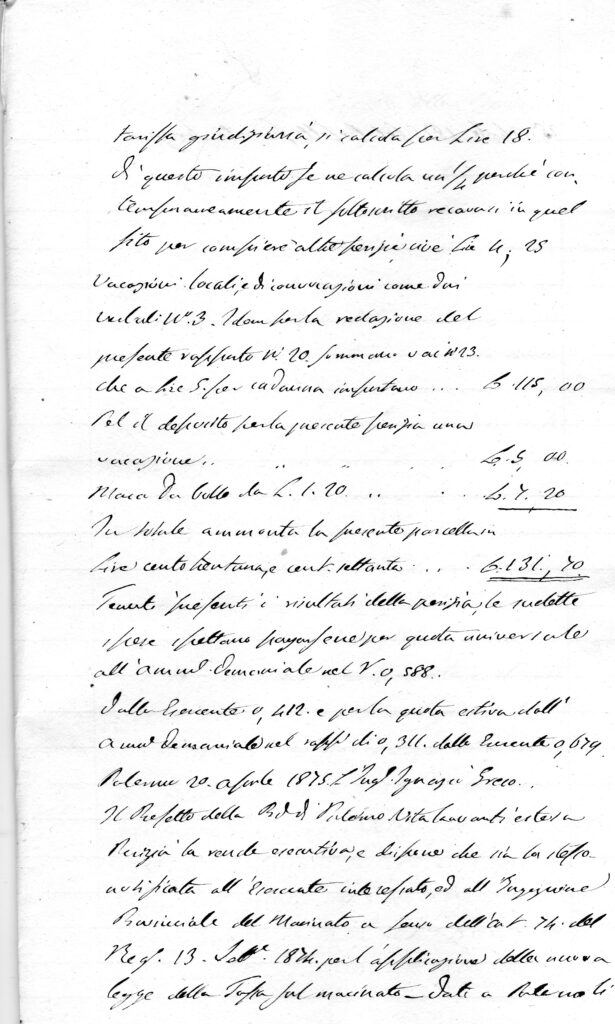 tariffa giudiziaria, si calcola per Lire 18.
di questo importo se ne calcola un 1/4 perchè con-
temporaneamente il sottoscritto recavasi in quel
sito per compiere altre perizie cioè Lire 4, 25
Vacazioni locali, e di convocazioni come dai
verbali N.° 3. Idem per la redazione del
presente rapporto N.° 20. sommano vac.i n.° 23.
che a lire 5. per cadauna importano ... £. 115, 00
Pel il deposito per la presente perizia una
vacazione .. " " " £. 5, 00.
Marca da bollo da L. 1. 20. .. . . £. 7, 20
In totale ammonta la presente parcella in
Lire centotrentuna, e cent. settanta . . . . £. 131, 70
Tenuti presenti i risultati della perizia, le sudette
spese spettano pagarsene per quota universale
all'Amm.e Demaniale nel 0, 588..
Dalla Esercente 0, 412. e per la quota estiva dall'
Amm.e Demaniale nel rapp.° di 0, 311. dalla Esercente 0, 679.
Palermo 20. aprile 1875. L'Ing.r Ignazio Greco..
Il Prefetto della di Palermo Vista l'avanti estesa
Perizia la rende esecutiva, e dispone che sia la stessa
notificata all'Esercente interessato, ed all'Ingegnere
Provinciale del Macinato a senso dell'art. 74. del
Reg. 13. Sett.e 1874. per l'applicazione della nuova
legge della Tassa sul macinato — Dato a Palermo li